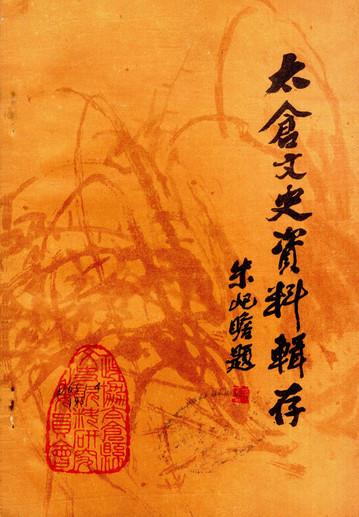 太倉文史資料輯存
朱屺瞻題
政協太倉縣
文史資料研究
委員會